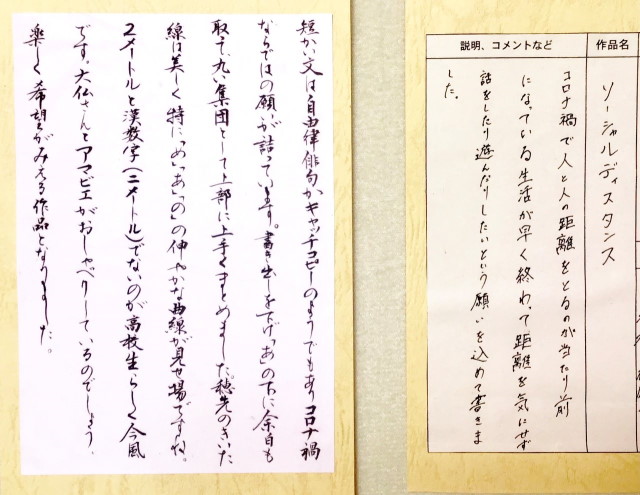 短かい文は自由律俳句かキャッチコピーのようでもありコロナ禍
ならではの願いが詰っています。書き出しを下げ「あ」の下に余白も
取って、丸い集団として上部に上手くまとめました。穂先のきいた
線は美しく特に「め」「あ」「の」の伸やかな曲線が見せ場ですね。
2メートルと漢数字(二メートル)でないのが高校生らしく今風
です。大仏さんとアマビエがおしゃべりしているのでしょう。
楽しく希望がみえる作品となりました。
作品名
ソーシャルディスタンス
説明、コメントなど
コロナ禍で人と人の距離をとるのが当たり前
になっている生活が早く終わって距離を気にせず
話をしたり遊んだりしたいという願いを込めて書きま
した。